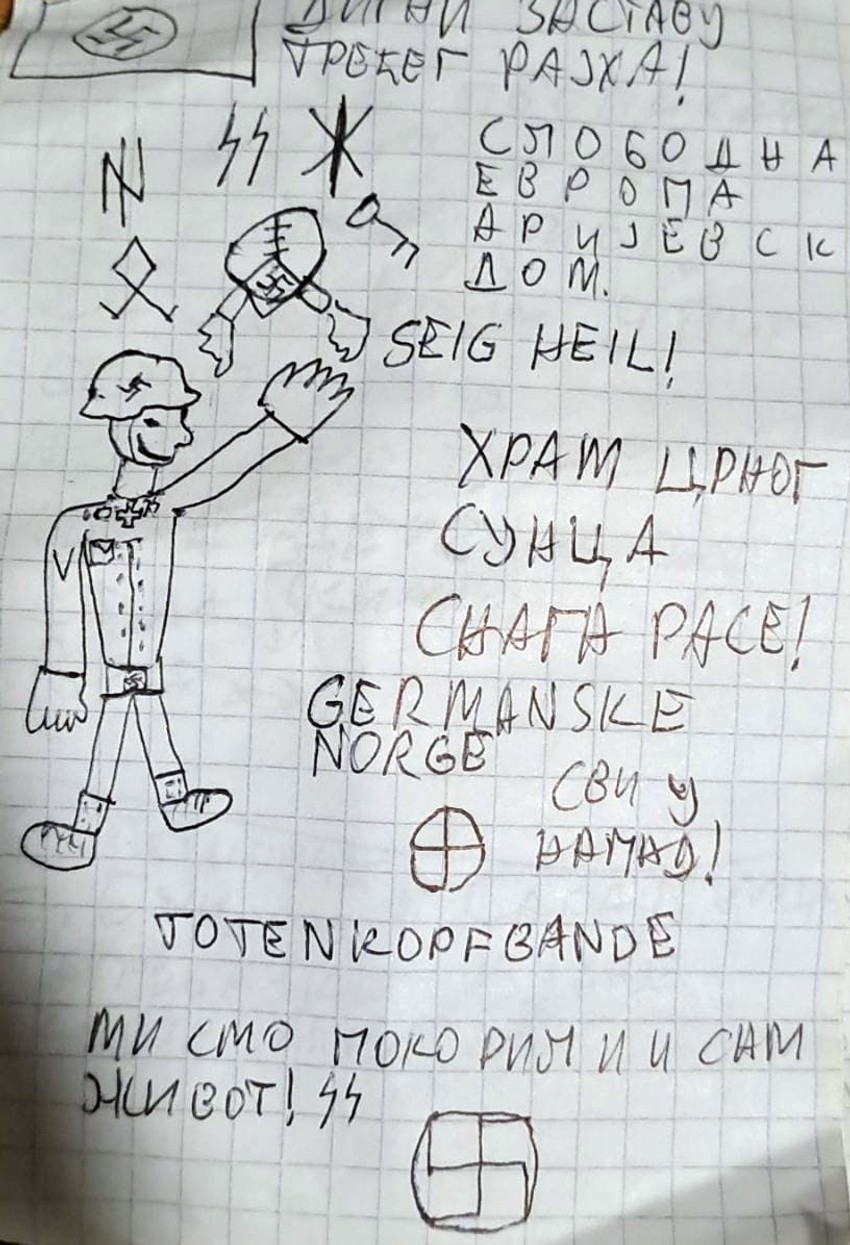 ДИГНИ ЗАСТАВУ
ТРЕЋЕГ РАЈХА!
СЛОБОДНА
ЕВРОПА
АРИЈЕВСК
ДОМ.
SEIG HEIL!
ХРАМ ЦРНОГ
СУНЦА
СНАГА РАСЕ!
GERMANSKE
NORGE
СВИ У
НАПАД!
TOTENKOPFBANDE
МИ СМО ПОКОРИЛИ И САМ
ЖИВОТ! ᛋᛋ